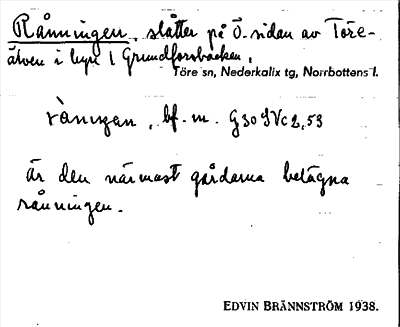 Rånningen, slåtter på Ö. sidan av Töre-
älven i byn 1 Grundforsbacken.
Töre sn, Nederkalix tg, Norrbottens l.
bf. m. G30SVc2,53
Är den närmast gårdarna belägna
rånningen.
EDVIN BRÄNNSTRÖM 1938.